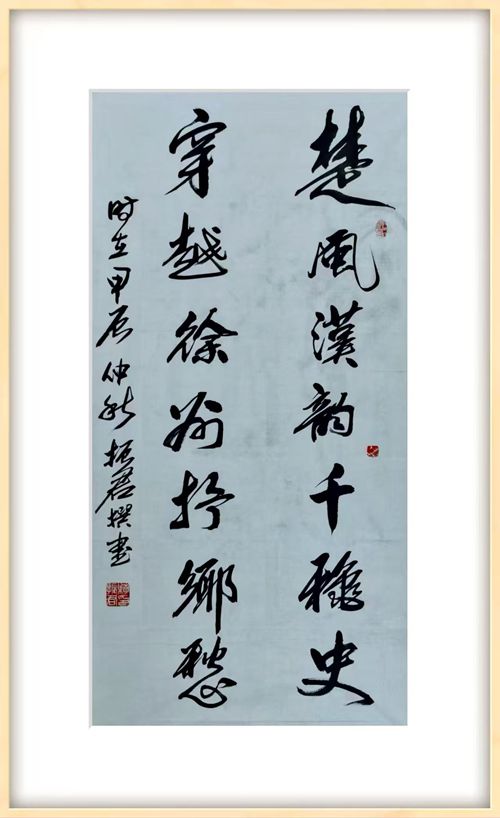 楚風漢韵千穐史
穿越徐州抒鄉愁
时在甲辰仲秋振君撰书